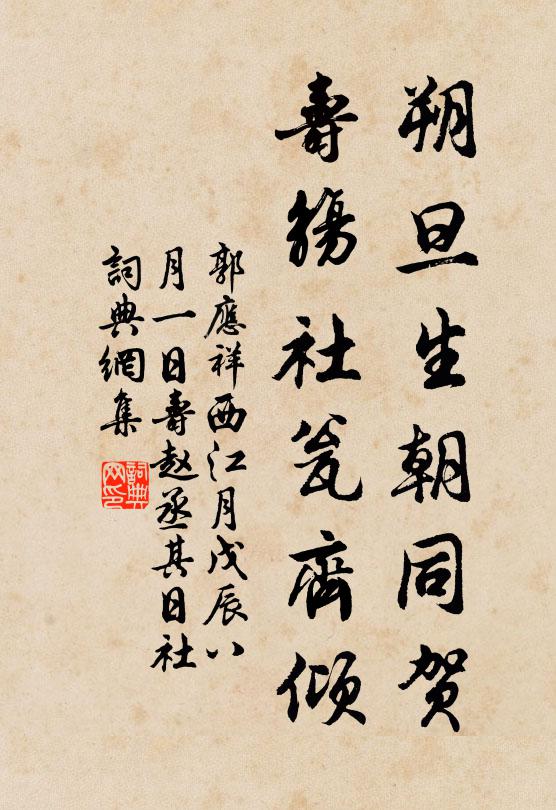 朔旦生朝同贺
壽觴社瓮齊傾
郭應祥西江月戊辰八
月一日壽赵丞其日社
詞典網集
詞典网印